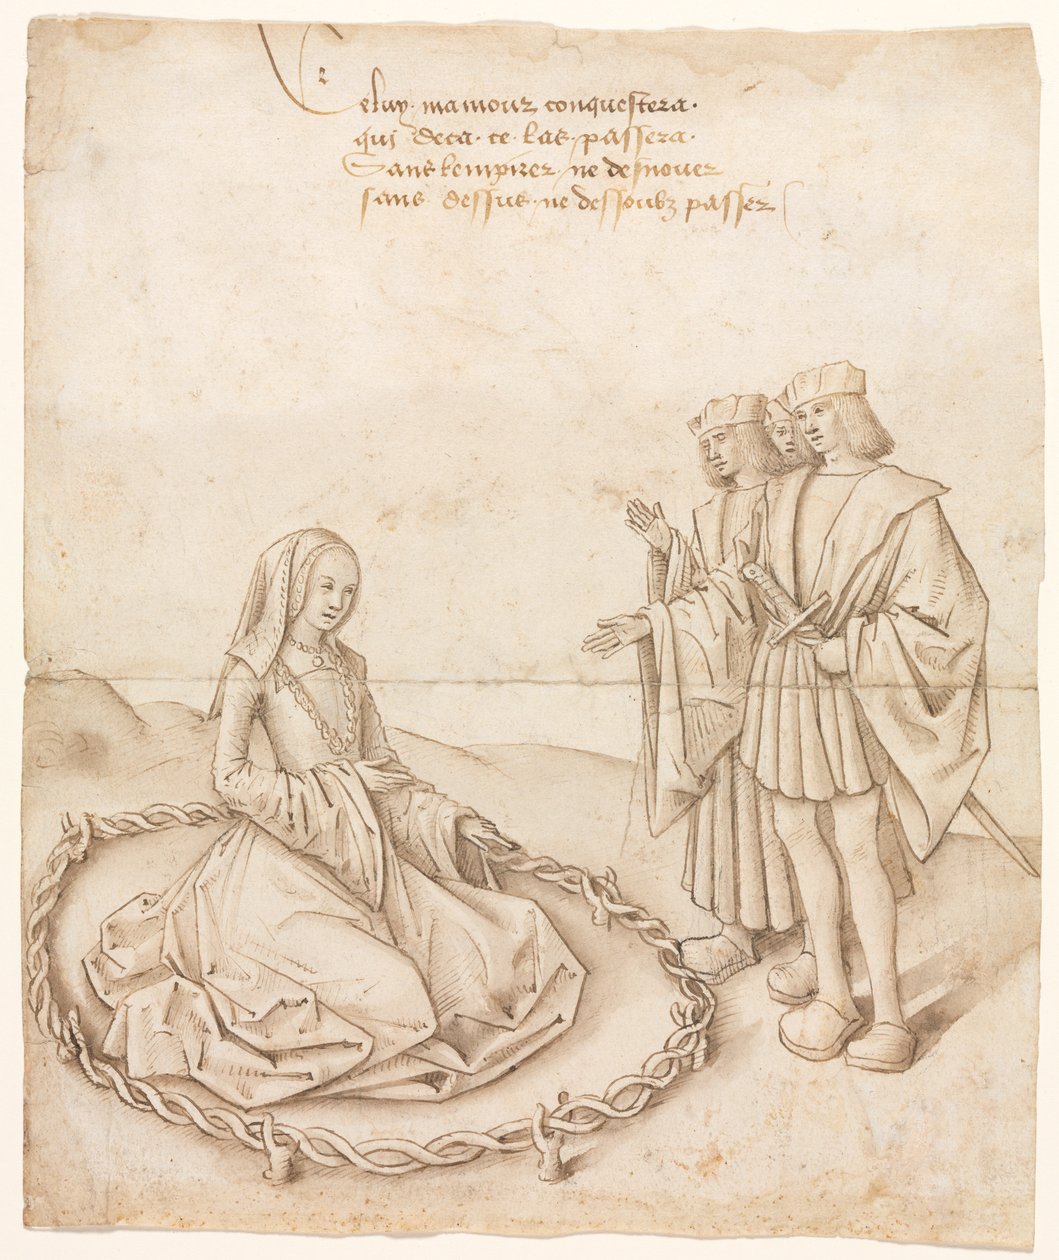 Celuy · mamour conquestera ·
qui deca · ce · las · passera ·
Sans lempirer · ne desnouer
sans dessus · ne dessoubz passer